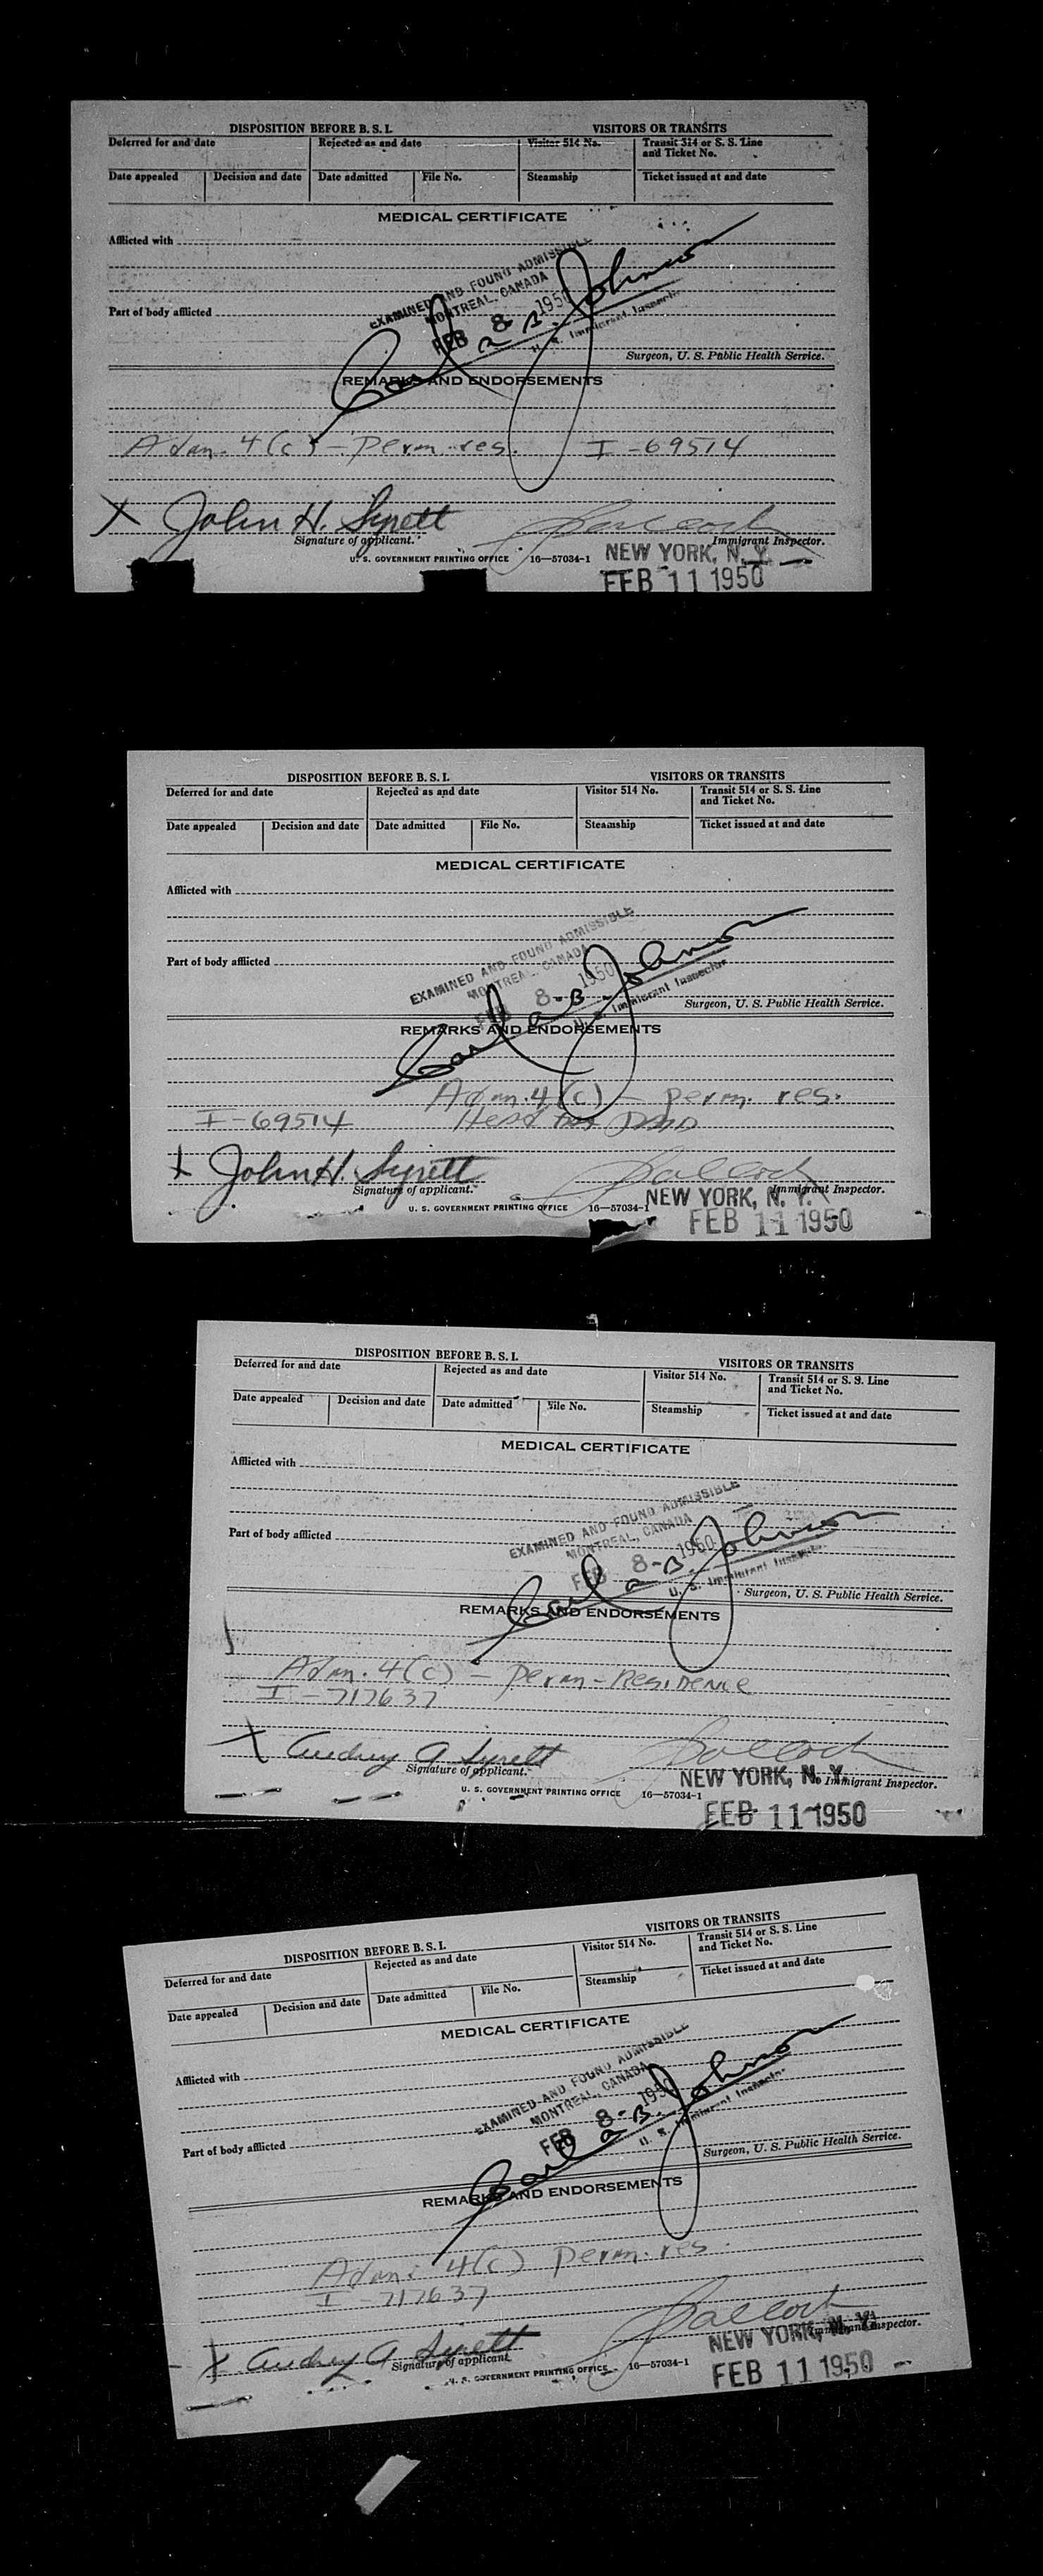 DISPOSITION BEFORE B. S. I. VISITORS OR TRANSITS
Deferred for and date Rejected as and date Visitor 514 No. Transit 514 or S. S. Line and Ticket No.
Date appealed Decision and date Date admitted File No. Steamship Ticket issued at and date
MEDICAL CERTIFICATE
Afflicted with
EXAMINED AND FOUND ADMISSIBLE
MONTREAL, CANADA
Part of body afflicted
FEB 8 - 1950
Carl B. Johnson
U. S. Immigrant Inspector
Surgeon, U. S. Public Health Service.
REMARKS AND ENDORSEMENTS
Adm. 4(c) - Perm. res. I-69514
X John H. Syrett
Signature of applicant. Immigrant Inspector.
U. S. GOVERNMENT PRINTING OFFICE 16—57034-1 NEW YORK, N. Y.
FEB 11 1950
DISPOSITION BEFORE B. S. I. VISITORS OR TRANSITS
Deferred for and date Rejected as and date Visitor 514 No. Transit 514 or S. S. Line and Ticket No.
Date appealed Decision and date Date admitted File No. Steamship Ticket issued at and date
MEDICAL CERTIFICATE
Afflicted with
EXAMINED AND FOUND ADMISSIBLE
MONTREAL, CANADA
Part of body afflicted
FEB 8 - 1950
Carl B. Johnson
U. S. Immigrant Inspector
Surgeon, U. S. Public Health Service.
REMARKS AND ENDORSEMENTS
Adm. 4(c) - perm. res.
I-69514 Head tax
X John H. Syrett
Signature of applicant. Immigrant Inspector.
U. S. GOVERNMENT PRINTING OFFICE 16—57034-1 NEW YORK, N. Y.
FEB 11 1950
DISPOSITION BEFORE B. S. I. VISITORS OR TRANSITS
Deferred for and date Rejected as and date Visitor 514 No. Transit 514 or S. S. Line and Ticket No.
Date appealed Decision and date Date admitted File No. Steamship Ticket issued at and date
MEDICAL CERTIFICATE
Afflicted with
EXAMINED AND FOUND ADMISSIBLE
MONTREAL, CANADA
Part of body afflicted
FEB 8 - 1950
Carl B. Johnson
U. S. Immigrant Inspector
Surgeon, U. S. Public Health Service.
REMARKS AND ENDORSEMENTS
Adm. 4(c) - perm - Residence
I - 717637
X Audrey A Syrett
Signature of applicant. Immigrant Inspector.
U. S. GOVERNMENT PRINTING OFFICE 16—57034-1 NEW YORK, N. Y.
FEB 11 1950
DISPOSITION BEFORE B. S. I. VISITORS OR TRANSITS
Deferred for and date Rejected as and date Visitor 514 No. Transit 514 or S. S. Line and Ticket No.
Date appealed Decision and date Date admitted File No. Steamship Ticket issued at and date
MEDICAL CERTIFICATE
Afflicted with
EXAMINED AND FOUND ADMISSIBLE
MONTREAL, CANADA
Part of body afflicted
FEB 8 - 1950
Carl B. Johnson
U. S. Immigrant Inspector
Surgeon, U. S. Public Health Service.
REMARKS AND ENDORSEMENTS
Adm. 4(c) perm. res.
I - 717637
X Audrey A Syrett
Signature of applicant. Immigrant Inspector.
U. S. GOVERNMENT PRINTING OFFICE 16—57034-1 NEW YORK, N. Y.
FEB 11 1950